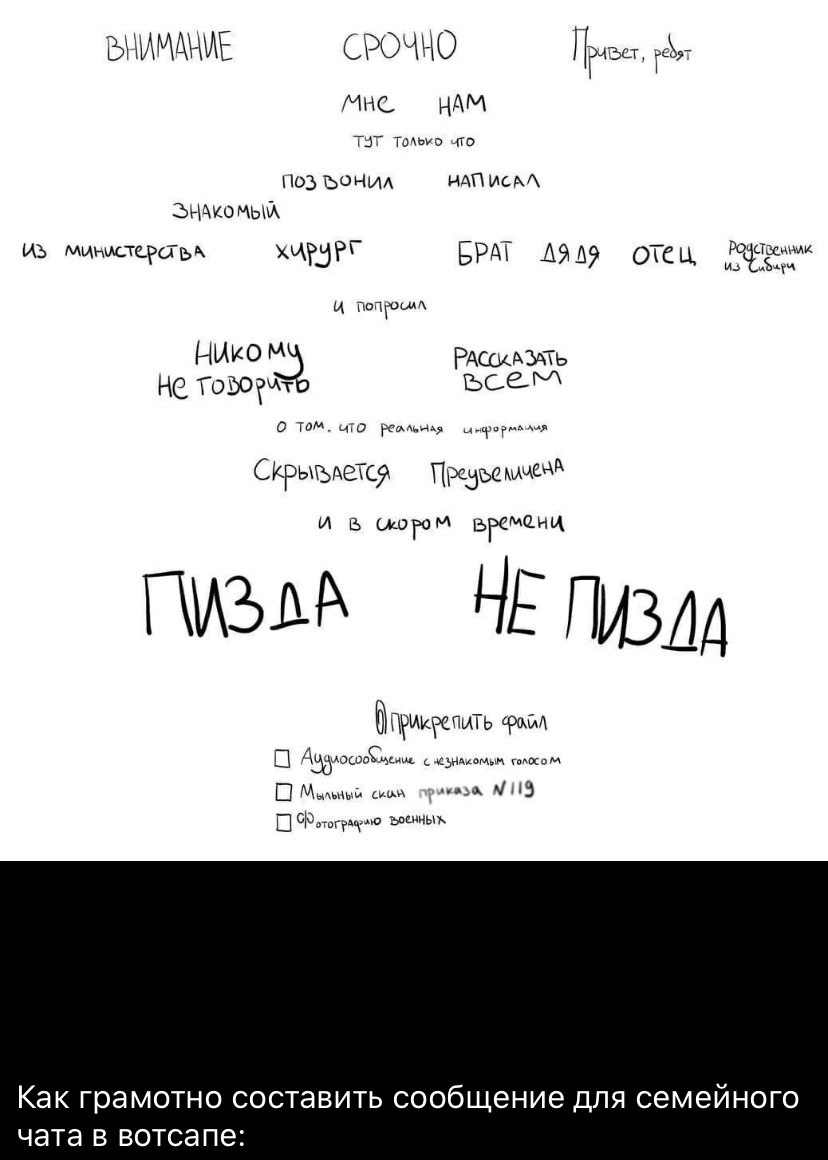 ВНИМАНИЕ СРОЧНО Привет, ребят
мне нам
тут только что
позвонил написал
знакомый
из министерства хирург БРАТ дядя отец Родственник из Сибири
и попросил
Никому не говорить Рассказать всем
о том. что реальная информация
Скрывается Преувеличена
и в скором времени
ПИЗДА НЕ ПИЗДА
Прикрепить файл
Аудиосообщение с незнакомым голосом
Мыльный скан приказа №119
Фотографию военных
Как грамотно составить сообщение для семейного
чата в вотсапе: